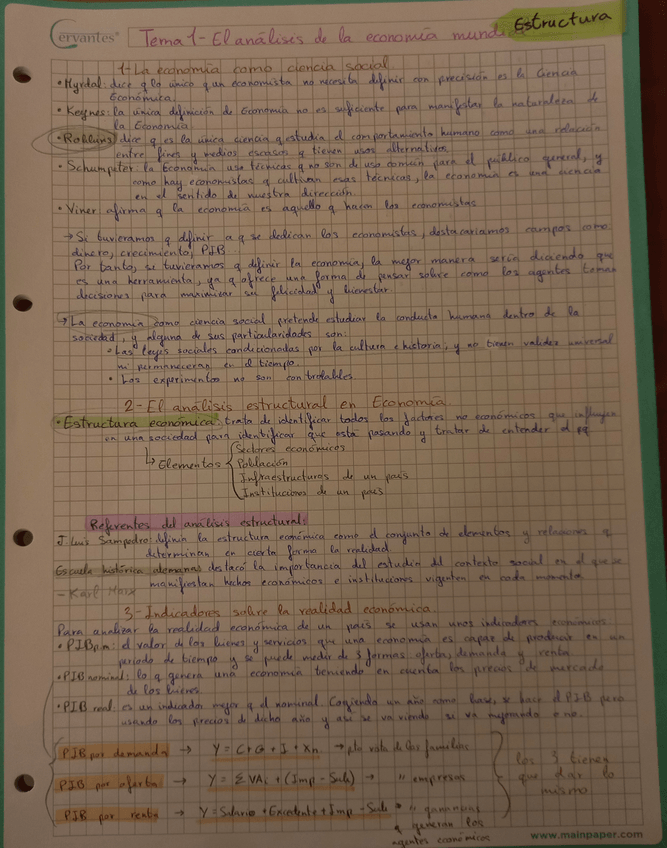 Cervantes®
Estructura
Tema 1 - El análises de la economía mund
1- La economía como ciencia social
• Myrdal: dice q lo único q un economista no necesita definir con precisión es la Ciencia
Económica.
• Keynes: la única definición de Economía no es suficiente para manifestar la naturaleza d
la Economía
• Robbins dice q es la única ciencia q estudia el comportamiento humano como una relación
entre fines y medios escasos q tienen usos alternativos
• Schumpeter la Economía usa técnicas q no son de uso común para el público general, y
como hay economistas q cultivan esas técnicas, la economía es una ciencia
en el sentido de nuestra dirección.
• Viner afirma q la economía es aquello q hacen los economistas
→ Si tuvieramos q definir a q se dedican los economistas, destacaríamos campos como
dinero, crecimiento, PIB
Por tanto, si tuvieramos q definir la economía, la mejor manera sería diciendo que
es una herramienta, ya q ofrece una forma de pensar sobre como los agentes toman
decisiones para maximizar su felicidad y bienestar.
→ La economía como ciencia social pretende estudiar la conducta humana dentro de la
sociedad, y alguna de sus particularidades son:
• Las leyes sociales condicionadas por la cultura e historia, y no tienen validez universal
ni permanecerán en el tiempo.
• Los experimentos no son controlables
2- El análisis estructural en Economía.
• Estructura económica: trata de identificar todos los factores no económicos que influyen
en una sociedad para identificar que está pasando y tratar de entender el pq
↳ Elementos
Sectores económicos
Población
Infraestructuras de un país
Instituciones de un país
Referentes del análisis estructural:
J. Luis Sampedro: definía la estructura económica como el conjunto de elementos y relaciones q
determinan en cierta forma la realidad
Escuela histórica alemana: destacó la importancia del estudio del contexto social en el que se
manifiestan hechos económicos e instituciones vigentes en cada momento
- Karl Marx
3- Indicadores sobre la realidad económica
Para analizar la realidad económica de un país se usan unos indicadores económicos
• PIBpm: el valor de los bienes y servicios que una economía es capaz de producir en un
período de tiempo y se puede medir de 3 formas oferta, demanda y renta
• PIB nominal: lo q genera una economía teniendo en cuenta los precios de mercado
de los bienes
• PIB real: es un indicador mejor q el nominal. Cogiendo un año como base, se hace el PIB pero
usando los precios de dicho año y así se va viendo si va mejorando o no.
PIB por demanda → Y = C + G + I + Xn → pto vista de las familias
PIB por oferta → Y = ΣVAi + (Imp - Sub) → " empresas
PIB por renta → Y = Salarios + Excedente + Imp - Sub → " ganancias
q generan los
agentes económicos
los 3 tienen
que dar lo
mismo
www.mainpaper.com